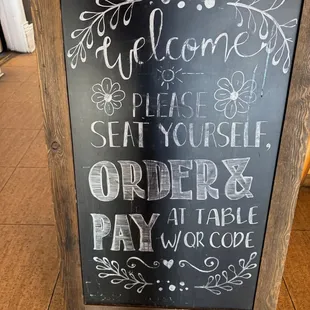 Welcome
PLEASE
SEAT YOURSELF,
ORDER &
PAY AT TABLE
W/QR CODE